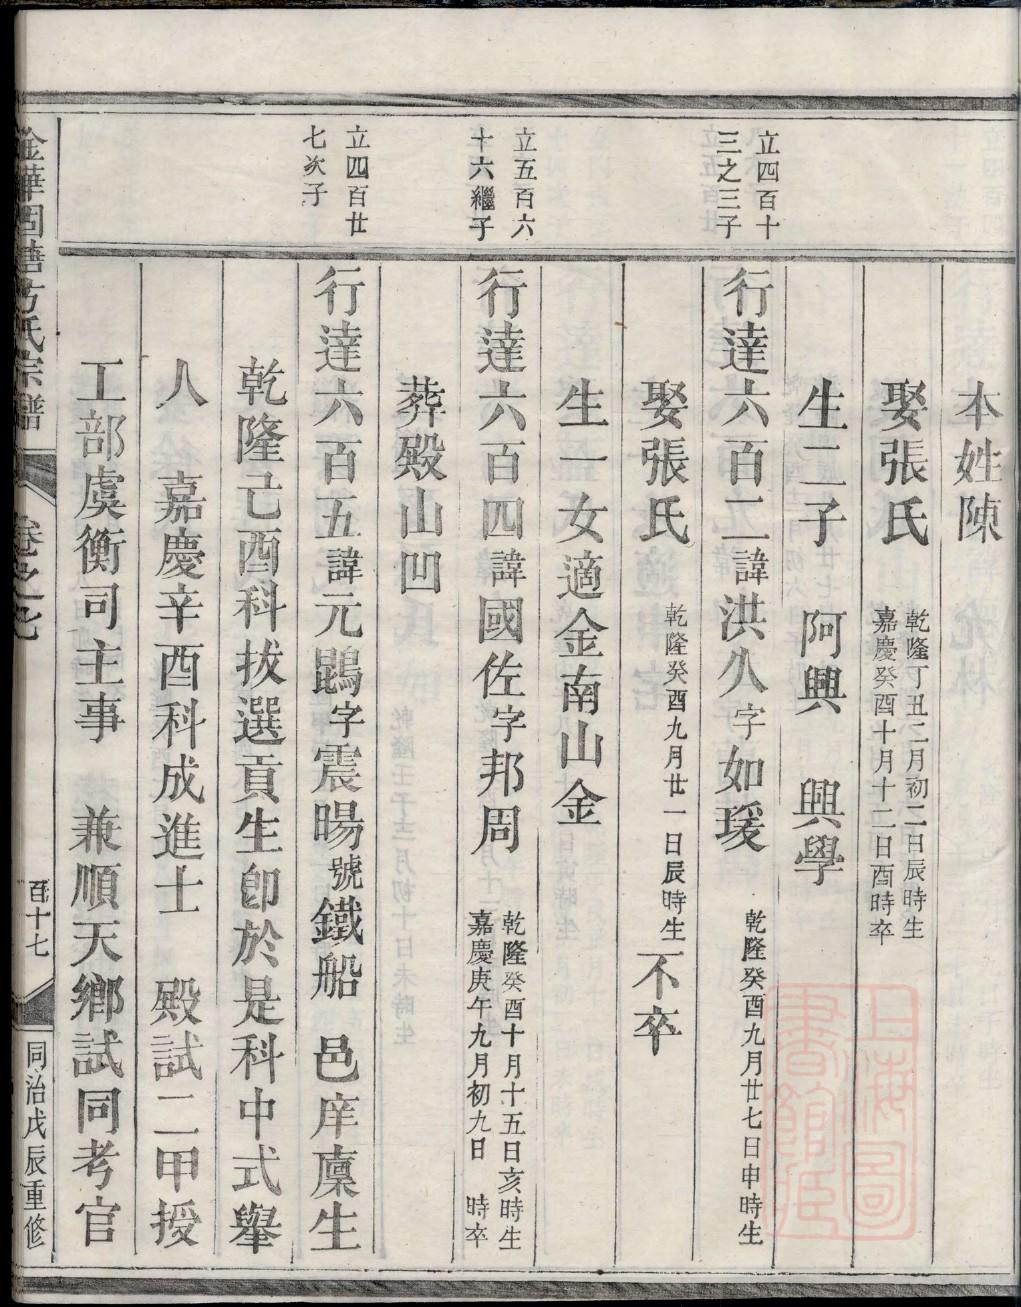 本姓陳
娶張氏
乾隆丁丑二月初二日辰時生
嘉慶癸酉十月十二日酉時卒
生二子　阿興　興學
立四百十
三之三子
行達六百二諱洪久字如瑗
乾隆癸酉九月廿七日申時生
娶張氏
乾隆癸酉九月廿一日辰時生
不卒
生一女適金南山金
立五百六
十六繼子
行達六百四諱國佐字邦周
乾隆癸酉十月十五日亥時生
嘉慶庚午九月初九日　時卒
葬殿山凹
立四百廿
七次子
行達六百五諱元鵾字震暘號鐵船　邑庠廩生
乾隆己酉科拔選貢生卽於是科中式舉
人　嘉慶辛酉科成進士　殿試二甲授
工部虞衡司主事　兼順天鄉試同考官
金華固塘方氏宗譜
卷之七
百十七
同治戊辰重修
上海圖書館藏